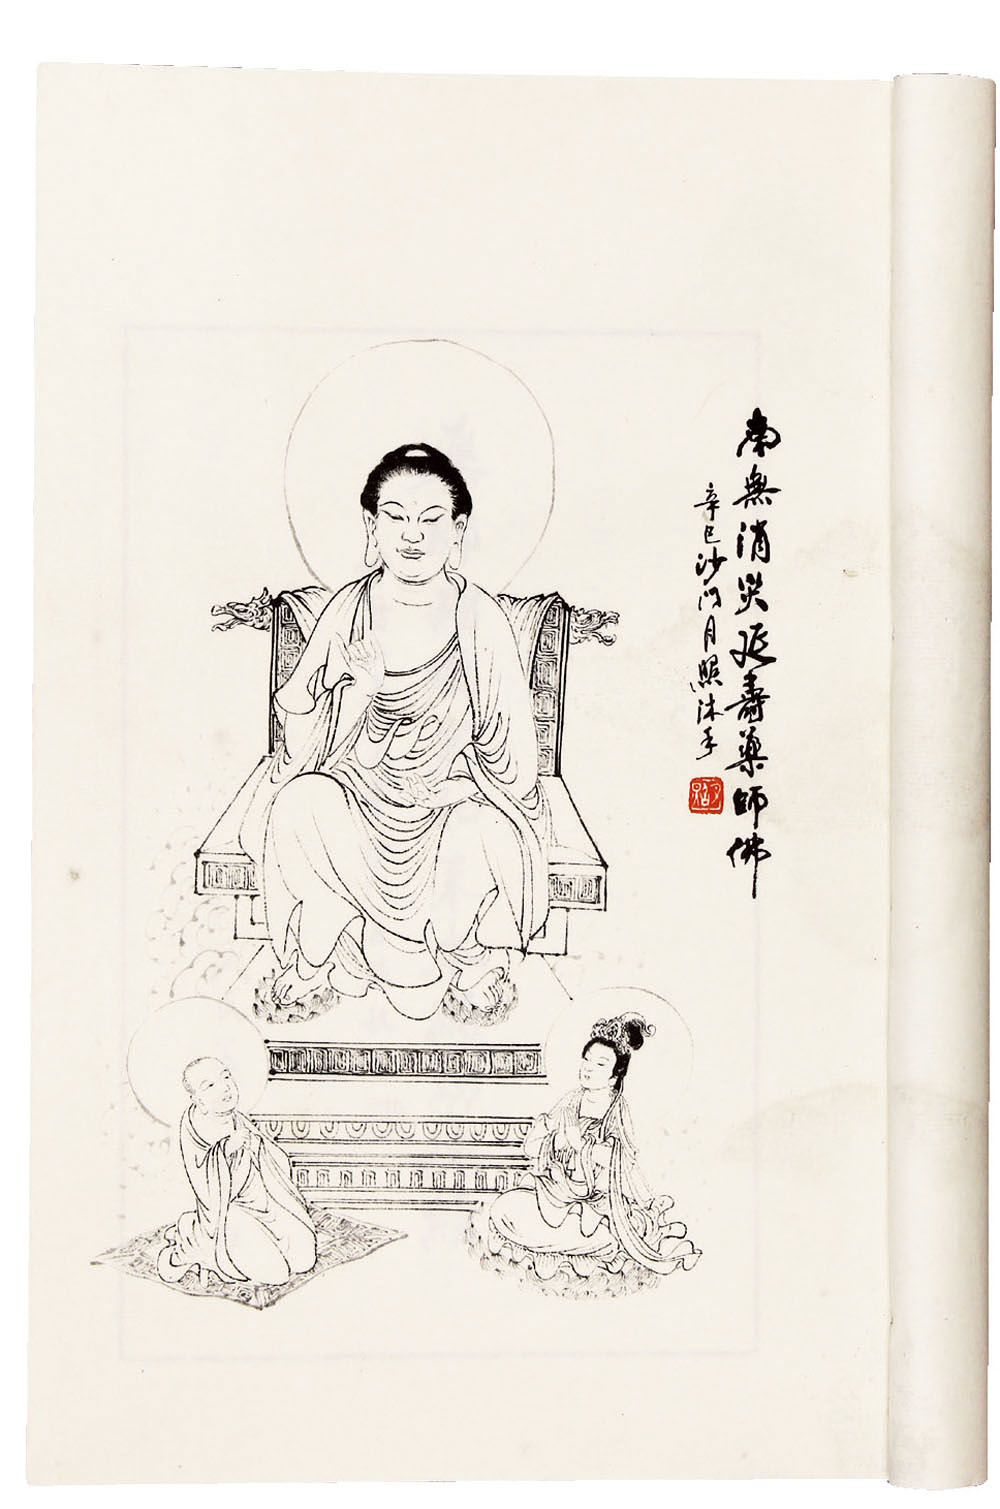 南無消災延壽藥師佛
辛巳沙门月照沐手
月照